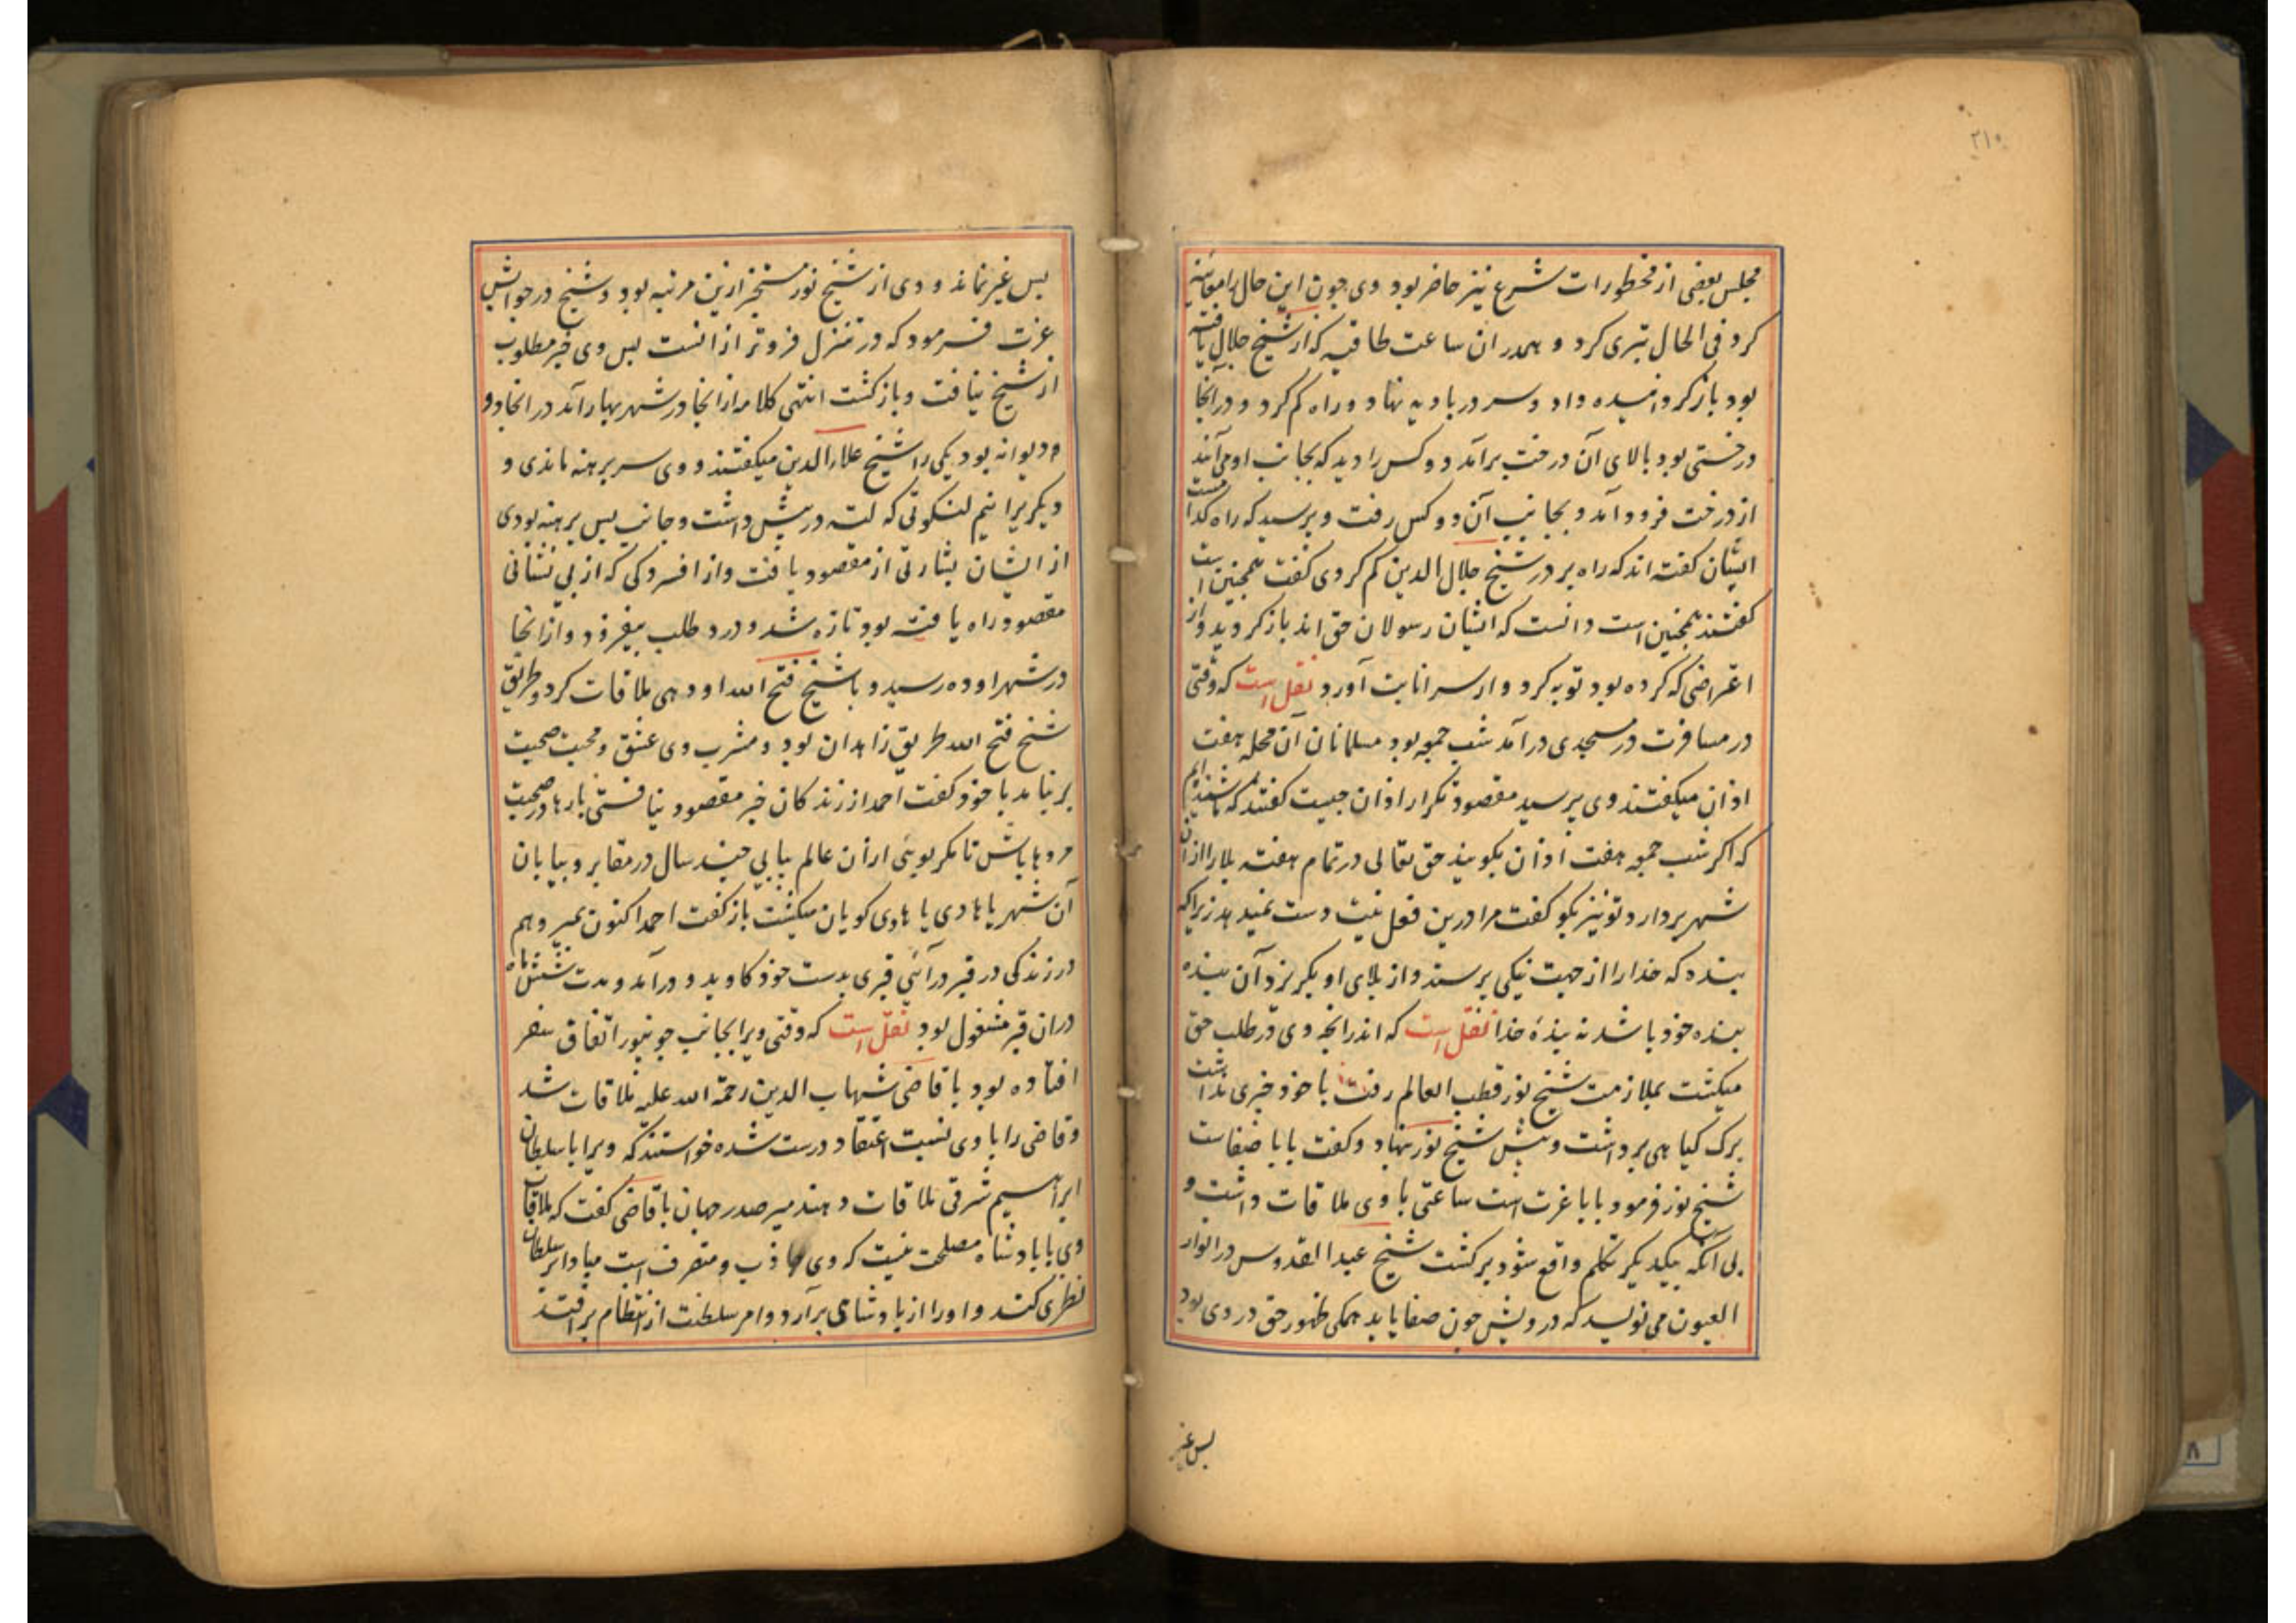 ۲۱۰
مجلس بعضی از محظورات شرع نیز حاضر بود وی چون این حال را معاینه
کرد فی الحال تبری کرد و همدران ساعت طاقیه که از شیخ جلال یافته
بود باز کردانیده داد و سر در بادیه نهاد و راه کم کرد و در آنجا
درختی بود بالای آن درخت برآمد دو کس را دید که بجانب او می آمدند
از درخت فرود آمد و بجانب آن دو کس رفت و پرسید که راه کدا مست
ایشان کفته اند که راه بر در شیخ جلال الدین کم کردی کفت همچنین است
کفتند همچنین است دانست که ایشان رسولان حق اند باز کردید و از
اعتراضی که کرده بود توبه کرد و از سر انابت آورد نقل است که وقتی
در مسافرت در مسجدی درآمد شب جمعه بود مسلمانان آن محله هفت
اذان میکفتند وی پرسید مقصود تکرار اذان چیست کفتند که شنیده ایم
که اکر شب جمعه هفت اذان بکویند حق تعالی در تمام هفته بلا را از ان
شهر بردارد تو نیز بکو کفت مرا درین فعل نیت دست نمیدهد زیرا که
بنده که خدا را از جهت نیکی پرستد و از بلای او بکریزد آن بنده
بنده خود باشد نه بندهٔ خدا نقل است که اندرانچه وی در طلب حق
میکشت بملازمت شیخ نور قطب العالم رفت با خود چیزی نداشت
برک کیاهی برداشت و پیش شیخ نور نهاد و کفت بابا صفاست
شیخ نور فرمود بابا عزت است ساعتی با وی ملاقات داشت و
بی آنکه بیکدیکر تکلم واقع شود برکشت شیخ عبد القدوس در انوار
العیون می نویسد که درویش چون صفا یابد همکی ظهور حق در وی بود
پس غیر
پس غیر نماند و وی از شیخ نور مستخبر ازین مرتبه بود و شیخ در جوابش
عزت فرمود که در منزل فروتر از انست پس وی خبر مطلوب
از شیخ نیافت و بازکشت انتهی کلامه از انجا در شهر بهار آمد در انجا دو
دیوانه بود یکی را شیخ علاء الدین میکفتند و وی سر برهنه ماندی و
دیکر یرا نیم لنکوتی که لته در پیش داشت و جانب پس برهنه بودی
از ایشان بشارتی از مقصود یافت و از افسردکی که از بی نشانی
مقصود راه یافته بود تازه شد و درد طلب بیفزود و از انجا
در شهر اوده رسید و با شیخ فتح الله اودهی ملاقات کرد و طریق
شیخ فتح الله طریق زاهدان بود و مشرب وی عشق و محبت صحبت
بر نیامد با خود کفت احمد از زندکان خبر مقصود نیافتی بارها در صحبت
مردها باش تا مکر بوئی از ان عالم بیابی چند سال در مقابر و بیابان
آن شهر یا هادی یا هادی کویان میکشت باز کفت احمد اکنون بمیر و هم
در زندکی در قبر درآئی قبری بدست خود کاوید و درآمد و مدت شش ماه
دران قبر مشغول بود نقل است که وقتی ویرا بجانب جونپور اتفاق سفر
افتاده بود با قاضی شهاب الدین رحمة الله علیه ملاقات شد
و قاضی را با وی نسبت اعتقاد درست شده خواستند که ویرا با سلطان
ابراهیم شرقی ملاقات دهند میر صدر جهان با قاضی کفت که ملاقات
وی با بادشاه مصلحت نیست که وی جاذب و متصرف است مبادا بر سلطان
نظری کند و او را از بادشاهی برآرد و امر سلطنت از انتظام برافتد